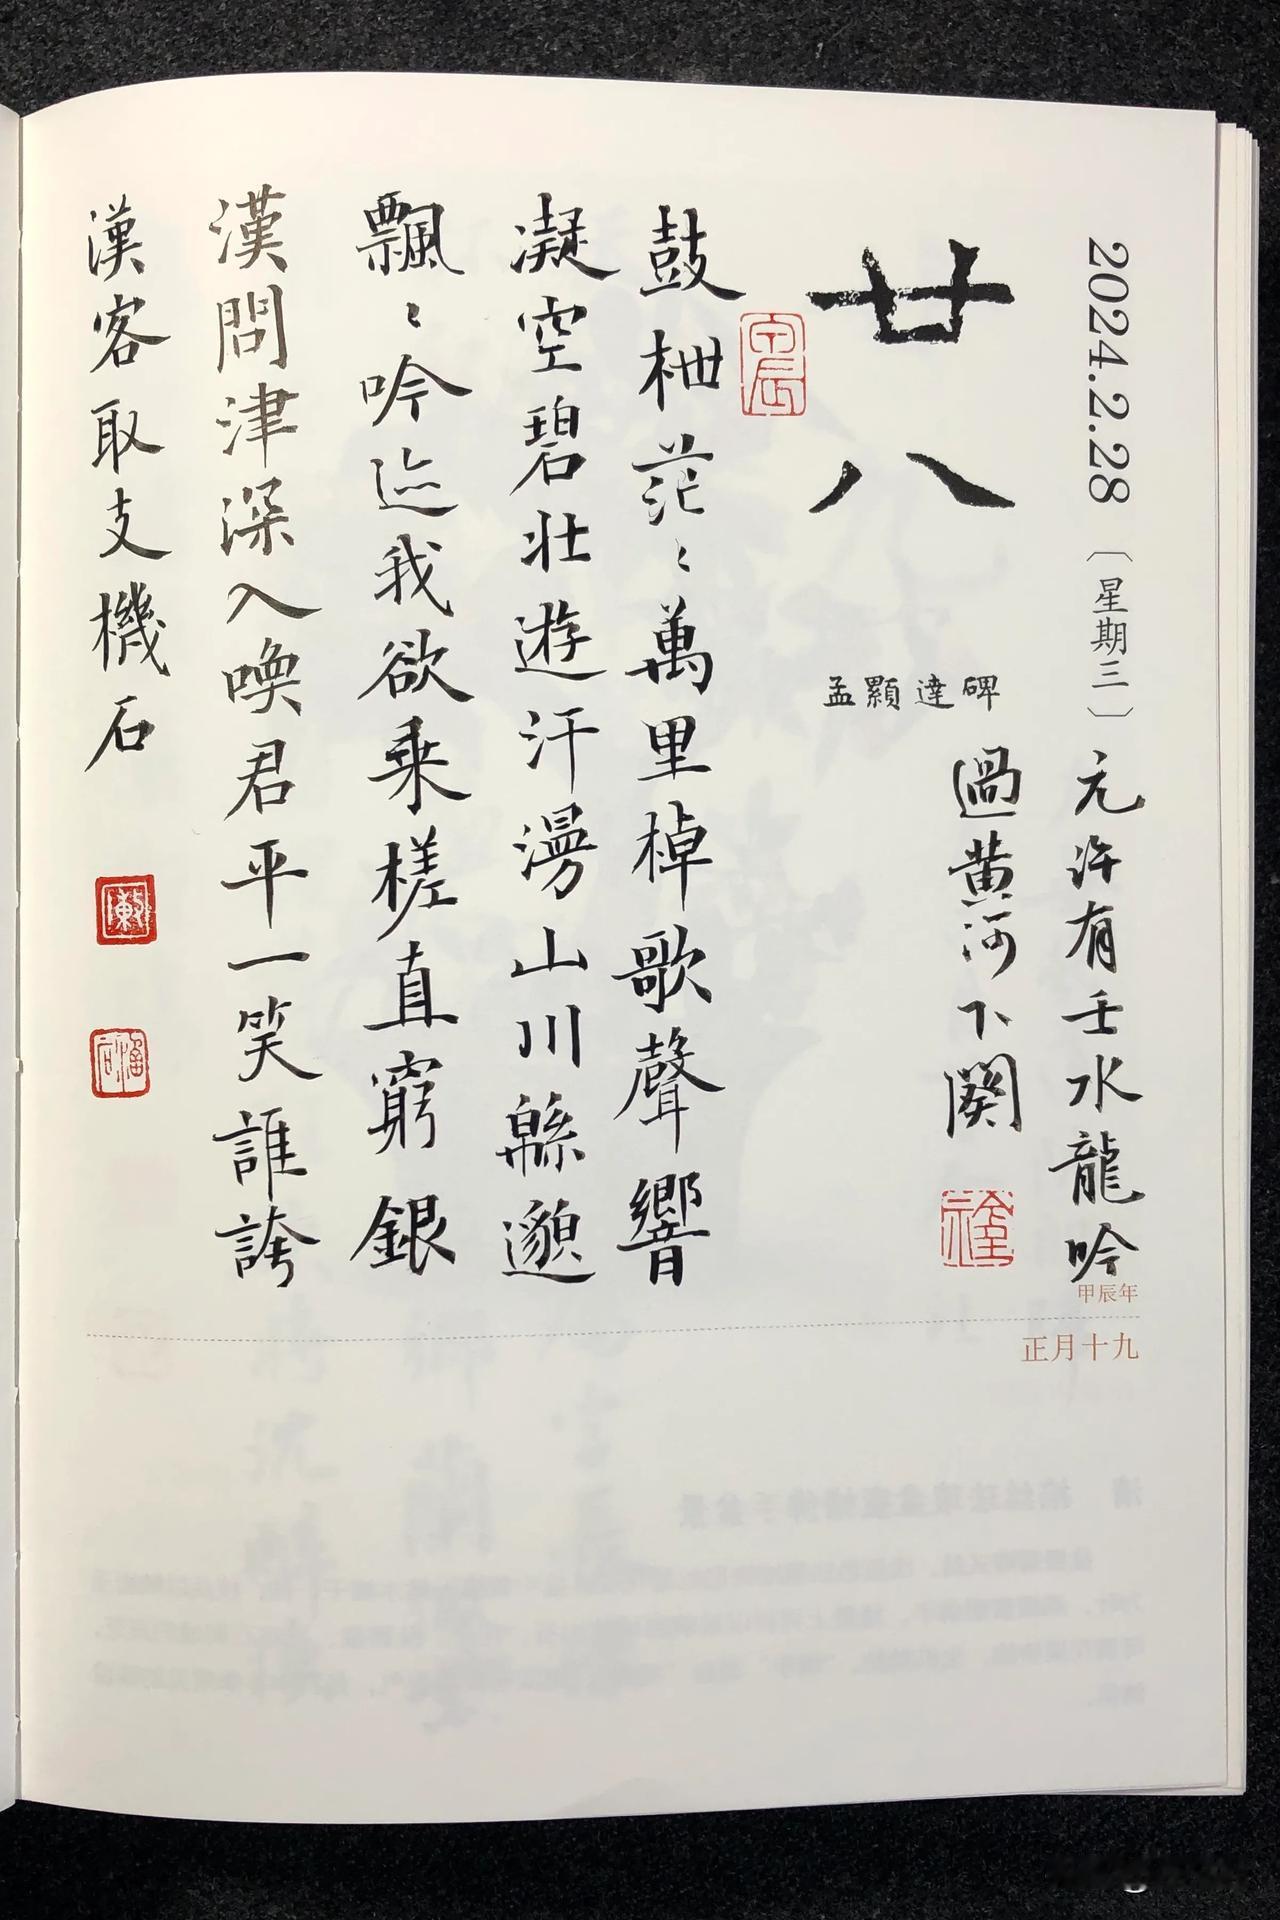 2024.2.28〔星期三〕
元許有壬水龍吟
過黃河下闋
廿八
孟顯達碑
鼓枻茫〻萬里棹歌聲響
凝空碧壯遊汗漫山川緜邈
飄〻吟迹我欲乘槎直窮銀
漢問津深入喚君平一笑誰誇
漢客取支機石
甲辰年
正月十九